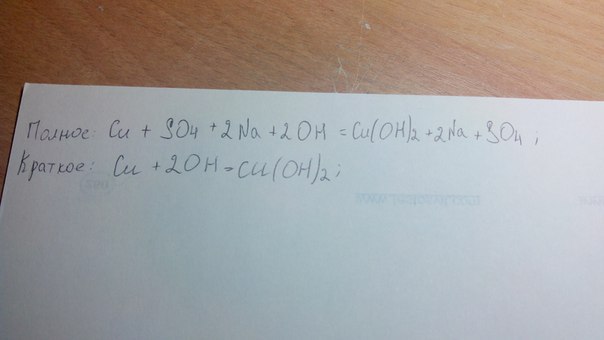 Полное: Cu + SO4 + 2Na + 2OH = Cu(OH)2 + 2Na + SO4;
Краткое: Cu + 2OH = Cu(OH)2;